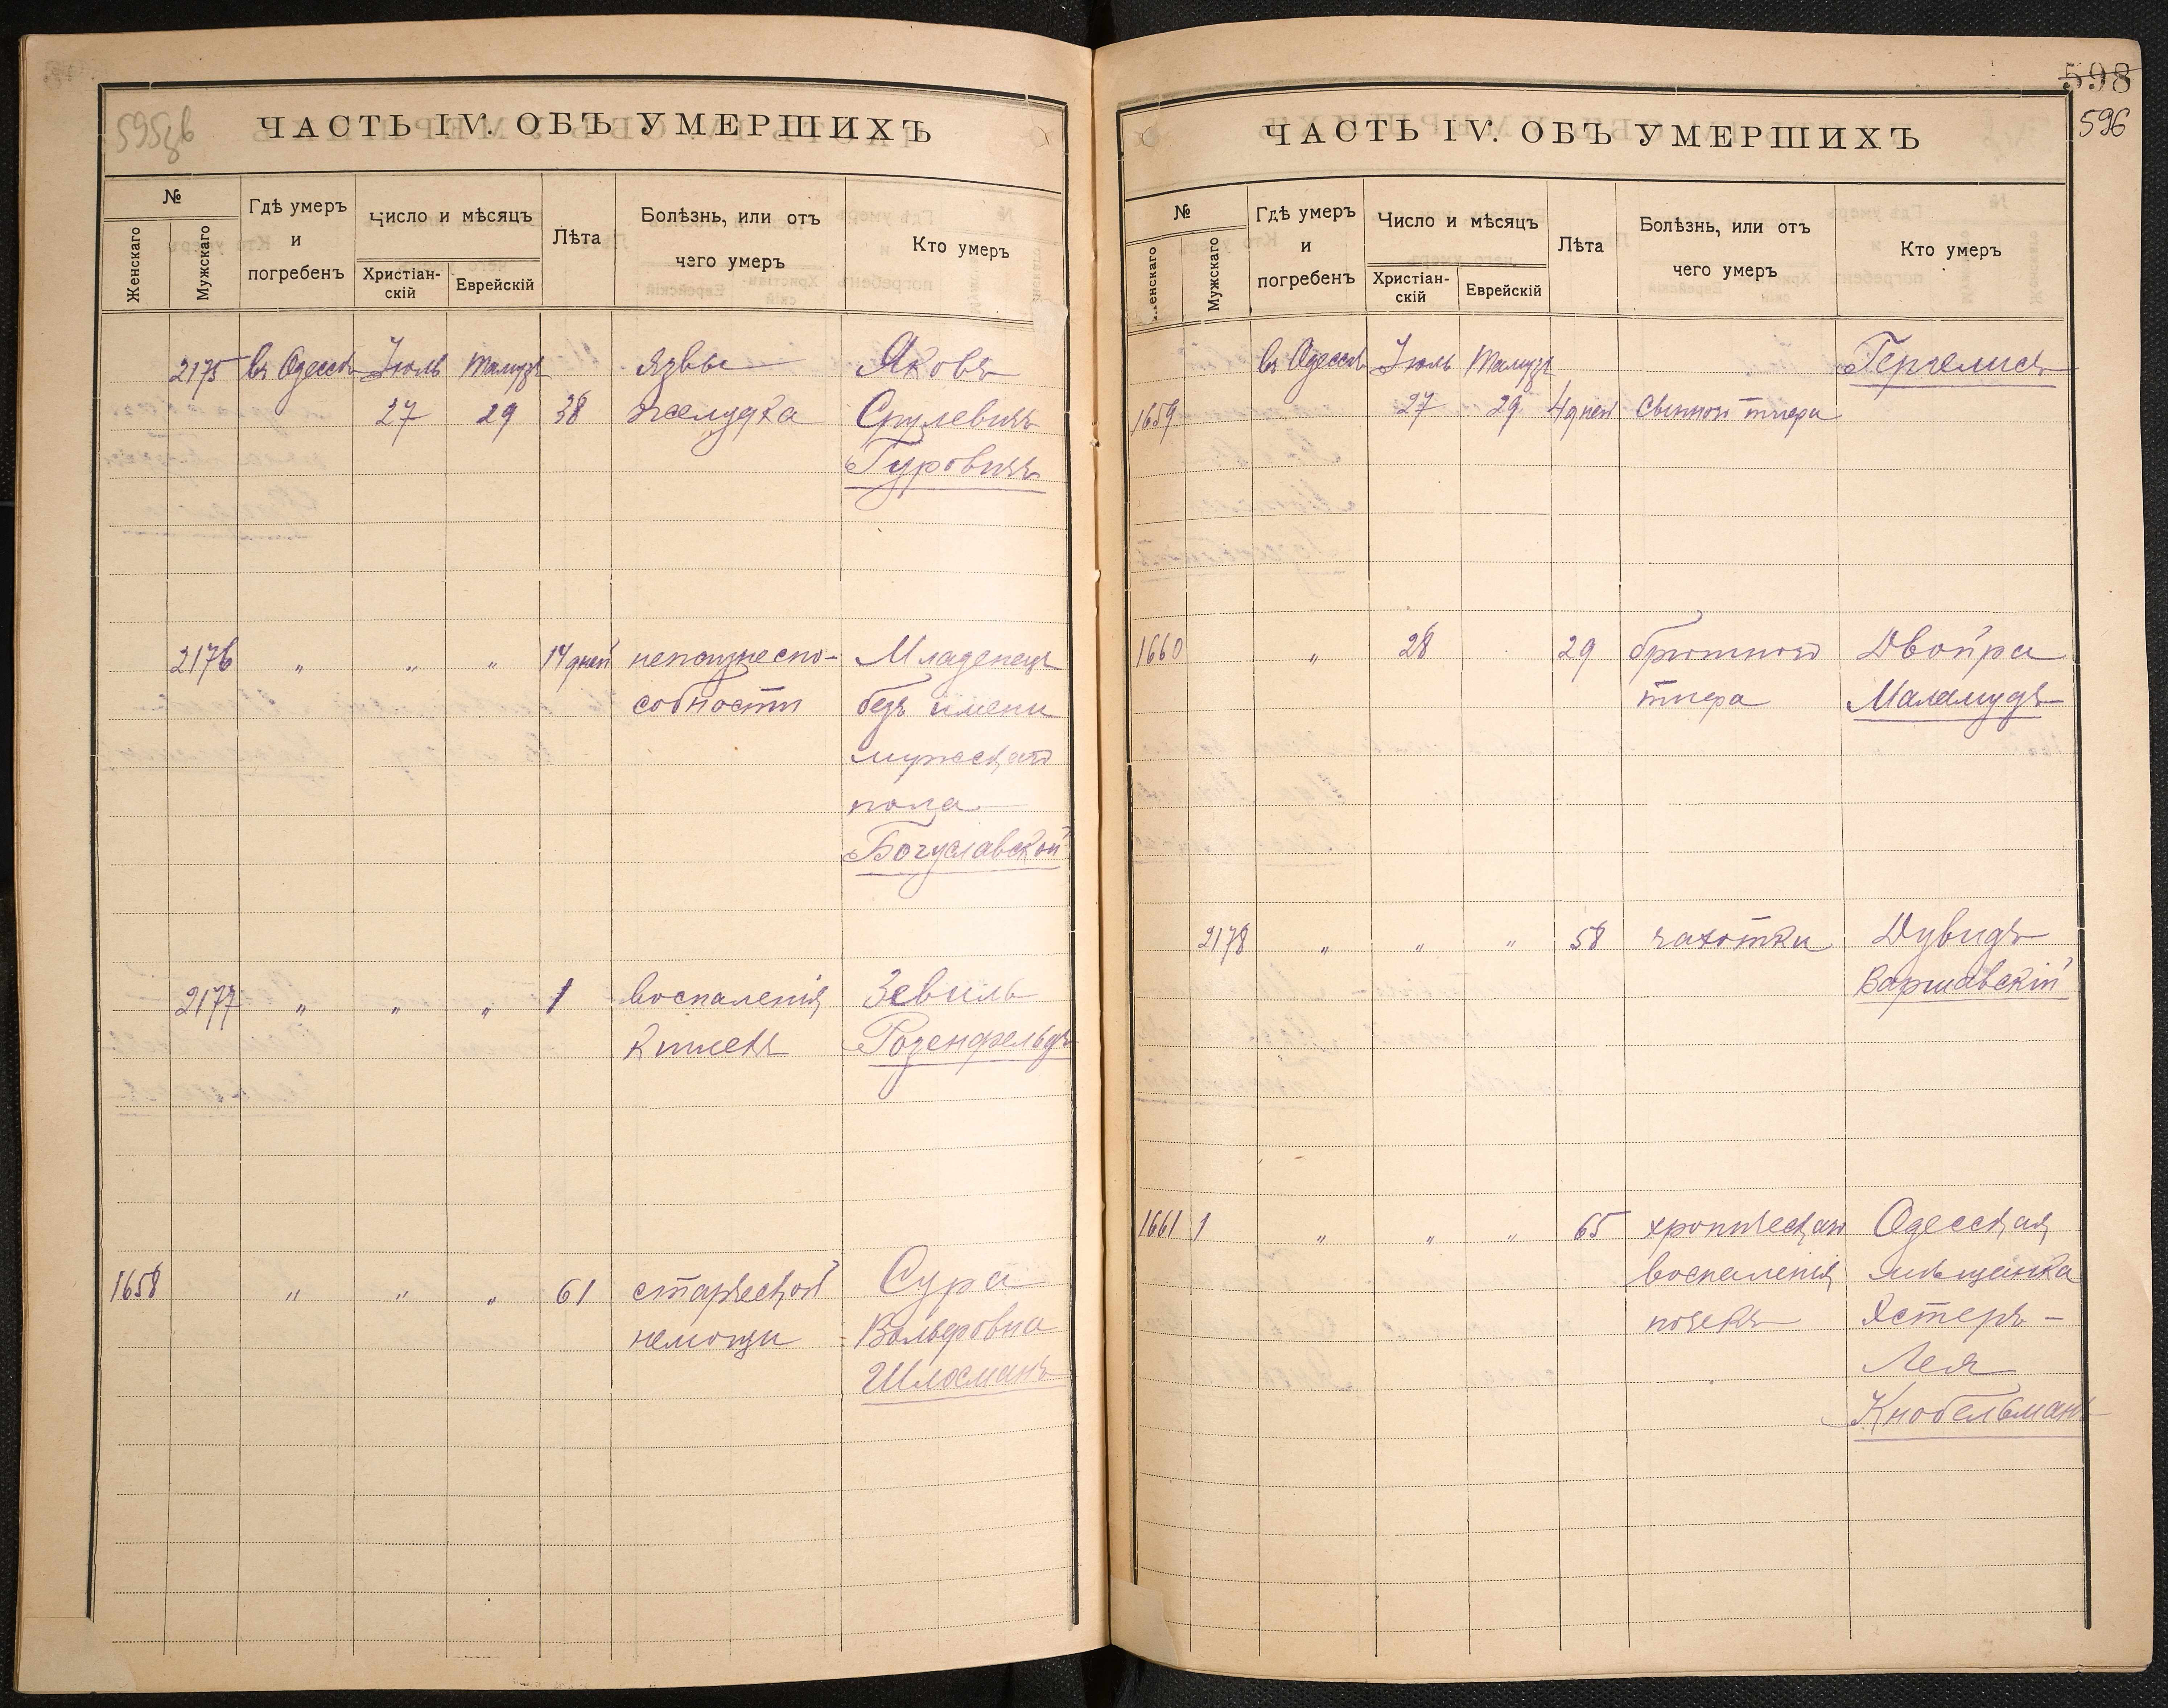 595зв
ЧАСТЬ IV. ОБЪ УМЕРШИХЪ
№
Женскаго
Мужскаго
Гдѣ умеръ
и
погребенъ
Число и мѣсяцъ
Христіан-
скій
Еврейскій
Лѣта
Болѣзнь, или отъ
чего умеръ
Кто умеръ
2175 въ Одессѣ Іюль Тамузъ язвы Яковъ
27 29 38 желудка Срулевичъ
Гуровичъ
2176 „ „ „ 14 дней неспо-
Младенецъ
собности безъ имени
мужскаго
пола
Богуславской
2177 „ „ „ 1 воспаленія Зевиль
кишекъ Розенфельдъ
1658 „ „ „ 61 старческой Сура
немощи Вольфовна
Шлосманъ
598
596
ЧАСТЬ IV. ОБЪ УМЕРШИХЪ
№
Женскаго
Мужскаго
Гдѣ умеръ
и
погребенъ
Число и мѣсяцъ
Христіан-
скій
Еврейскій
Лѣта
Болѣзнь, или отъ
чего умеръ
Кто умеръ
въ Одессѣ Іюль Тамузъ
1659 27 29 4 дней Сыпного тифа
1660 „ 28 29 брюшного Двойра
тифа Маламудъ
2178 „ „ „ 58 чахотки Дувидъ
Варшавскій
1661 1 „ „ „ 65 хроническаго Одесская
воспаленія мѣщанка
почекъ Эстеръ-
Лея
Кнобельманъ